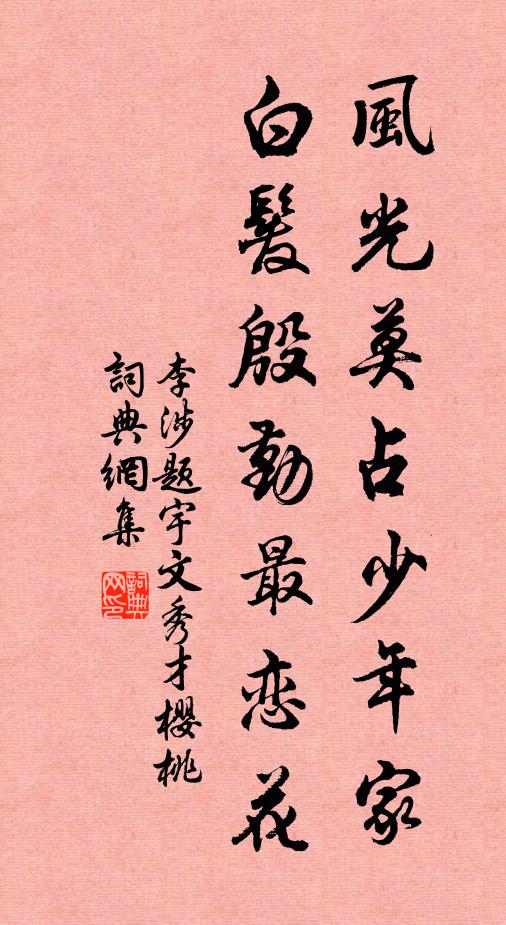 風光莫占少年家
白髮殷勤最恋花
李涉题宇文秀才櫻桃
詞典網集
詞典网印